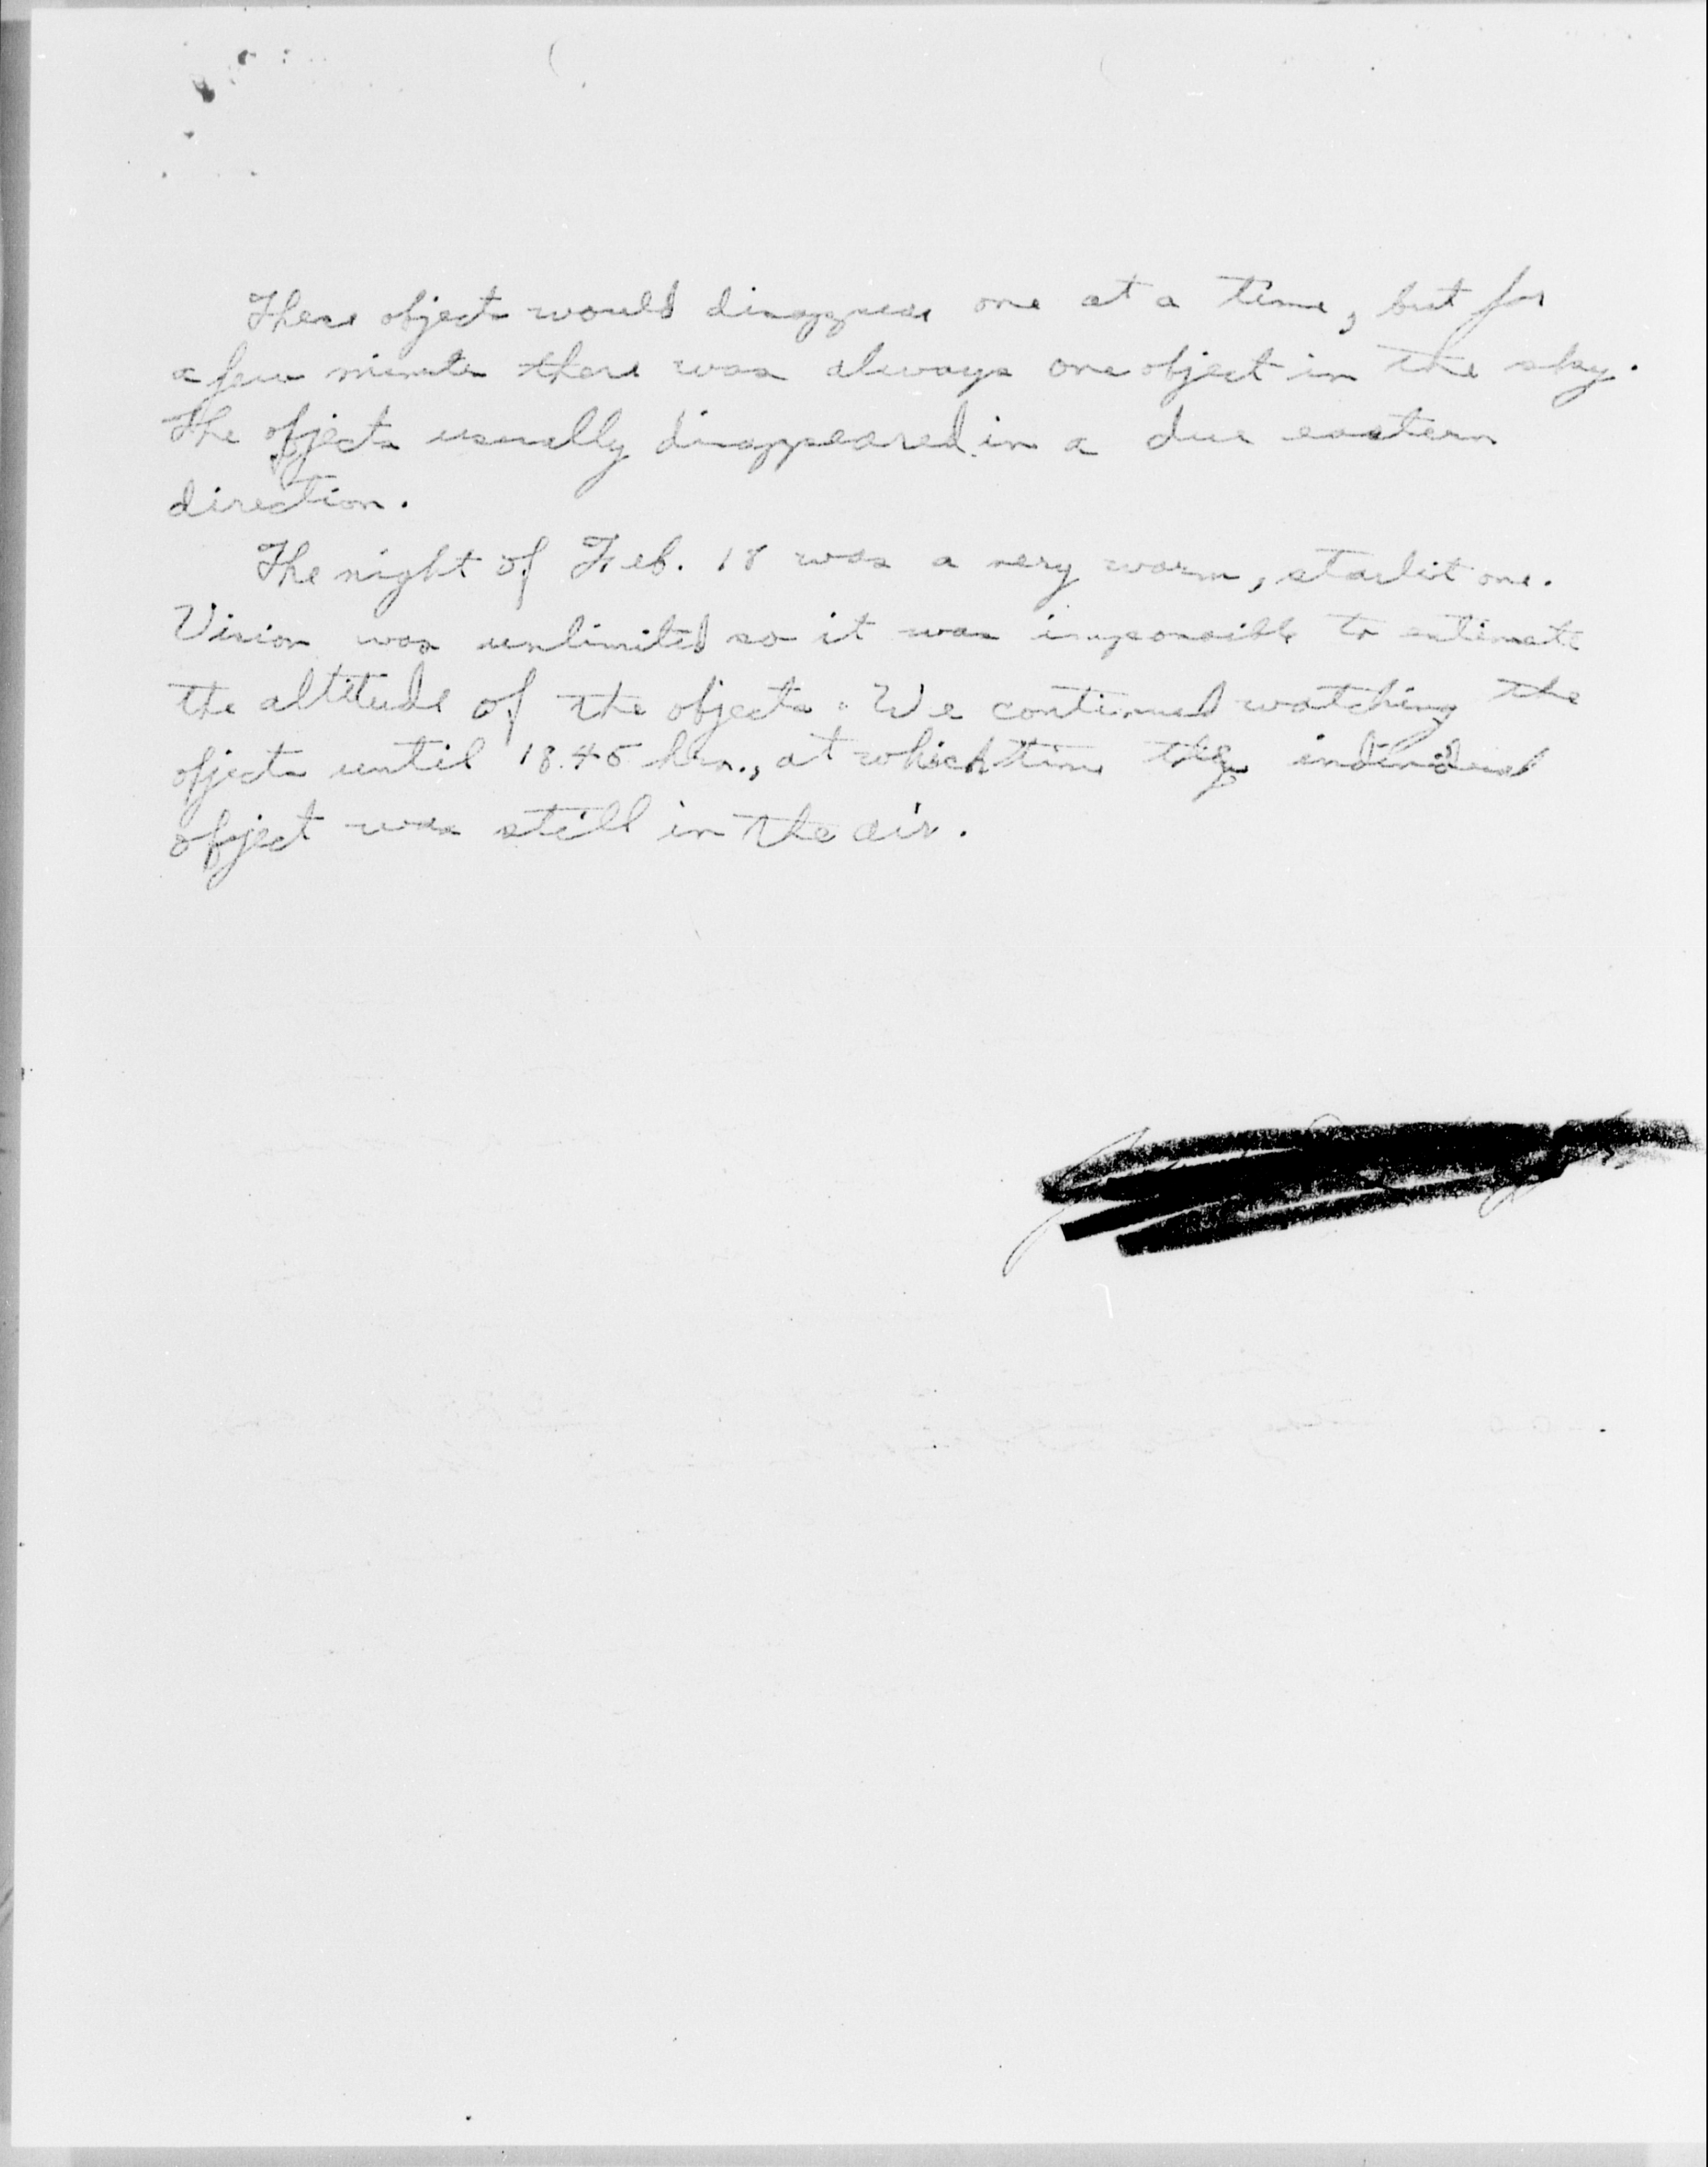 These objects would disappear one at a time, but for
a few minutes there was always one object in the sky.
The objects usually disappeared in a due eastern
direction.
The night of Feb. 18 was a very warm, starlit one.
Vision was unlimited so it was impossible to estimate
the altitude of the objects. We continued watching the
objects until 18.45 hrs., at which time the individual
object was still in the air.